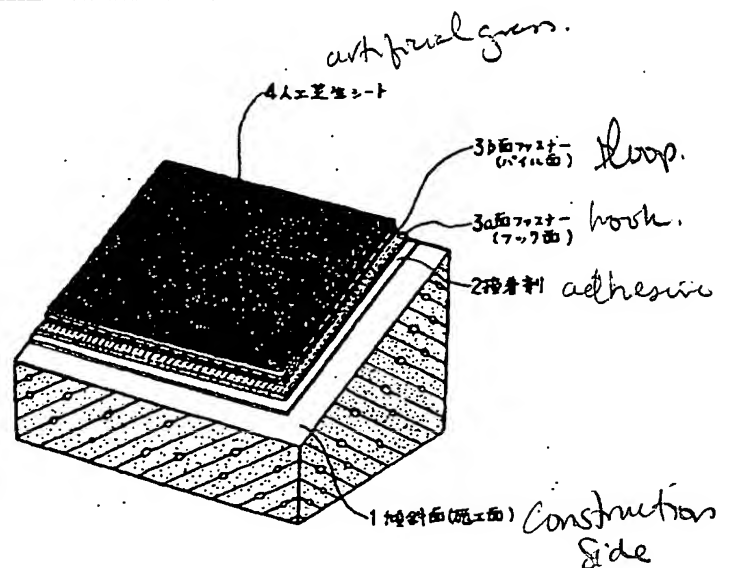 artificial grass.
4人工芝生シート
3b面ファスナー
(パイル面)
loop.
3a面ファスナー
(フック面)
hook.
2接着剤
adhesive
1傾斜面(施工面)
Construction
Side